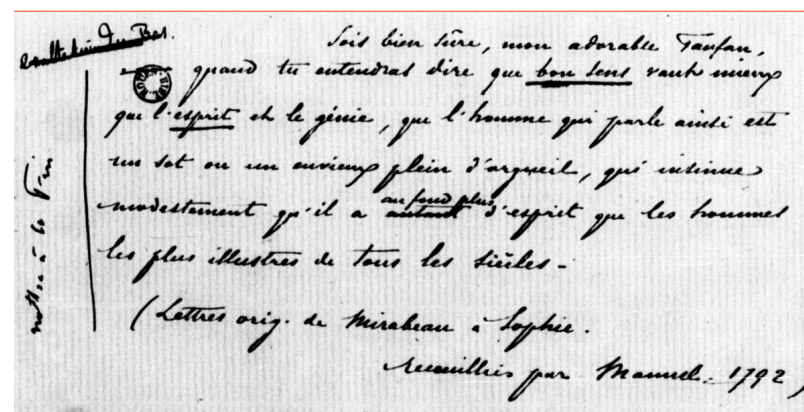 du Bas.
Sois bien sûre, mon adorable Fanfan,
quand tu entendras dire que bon sens vaut mieux
que l'esprit et le génie, que l'homme qui parle ainsi est
un sot ou un envieux plein d'orgueil, qui insinue
modestement qu'il a autant au fond plus d'esprit que les hommes
les plus illustres de tous les siècles -
(Lettres orig. de Mirabeau à Sophie.
recueillies par Manuel. 1792)
mettre à la Fin